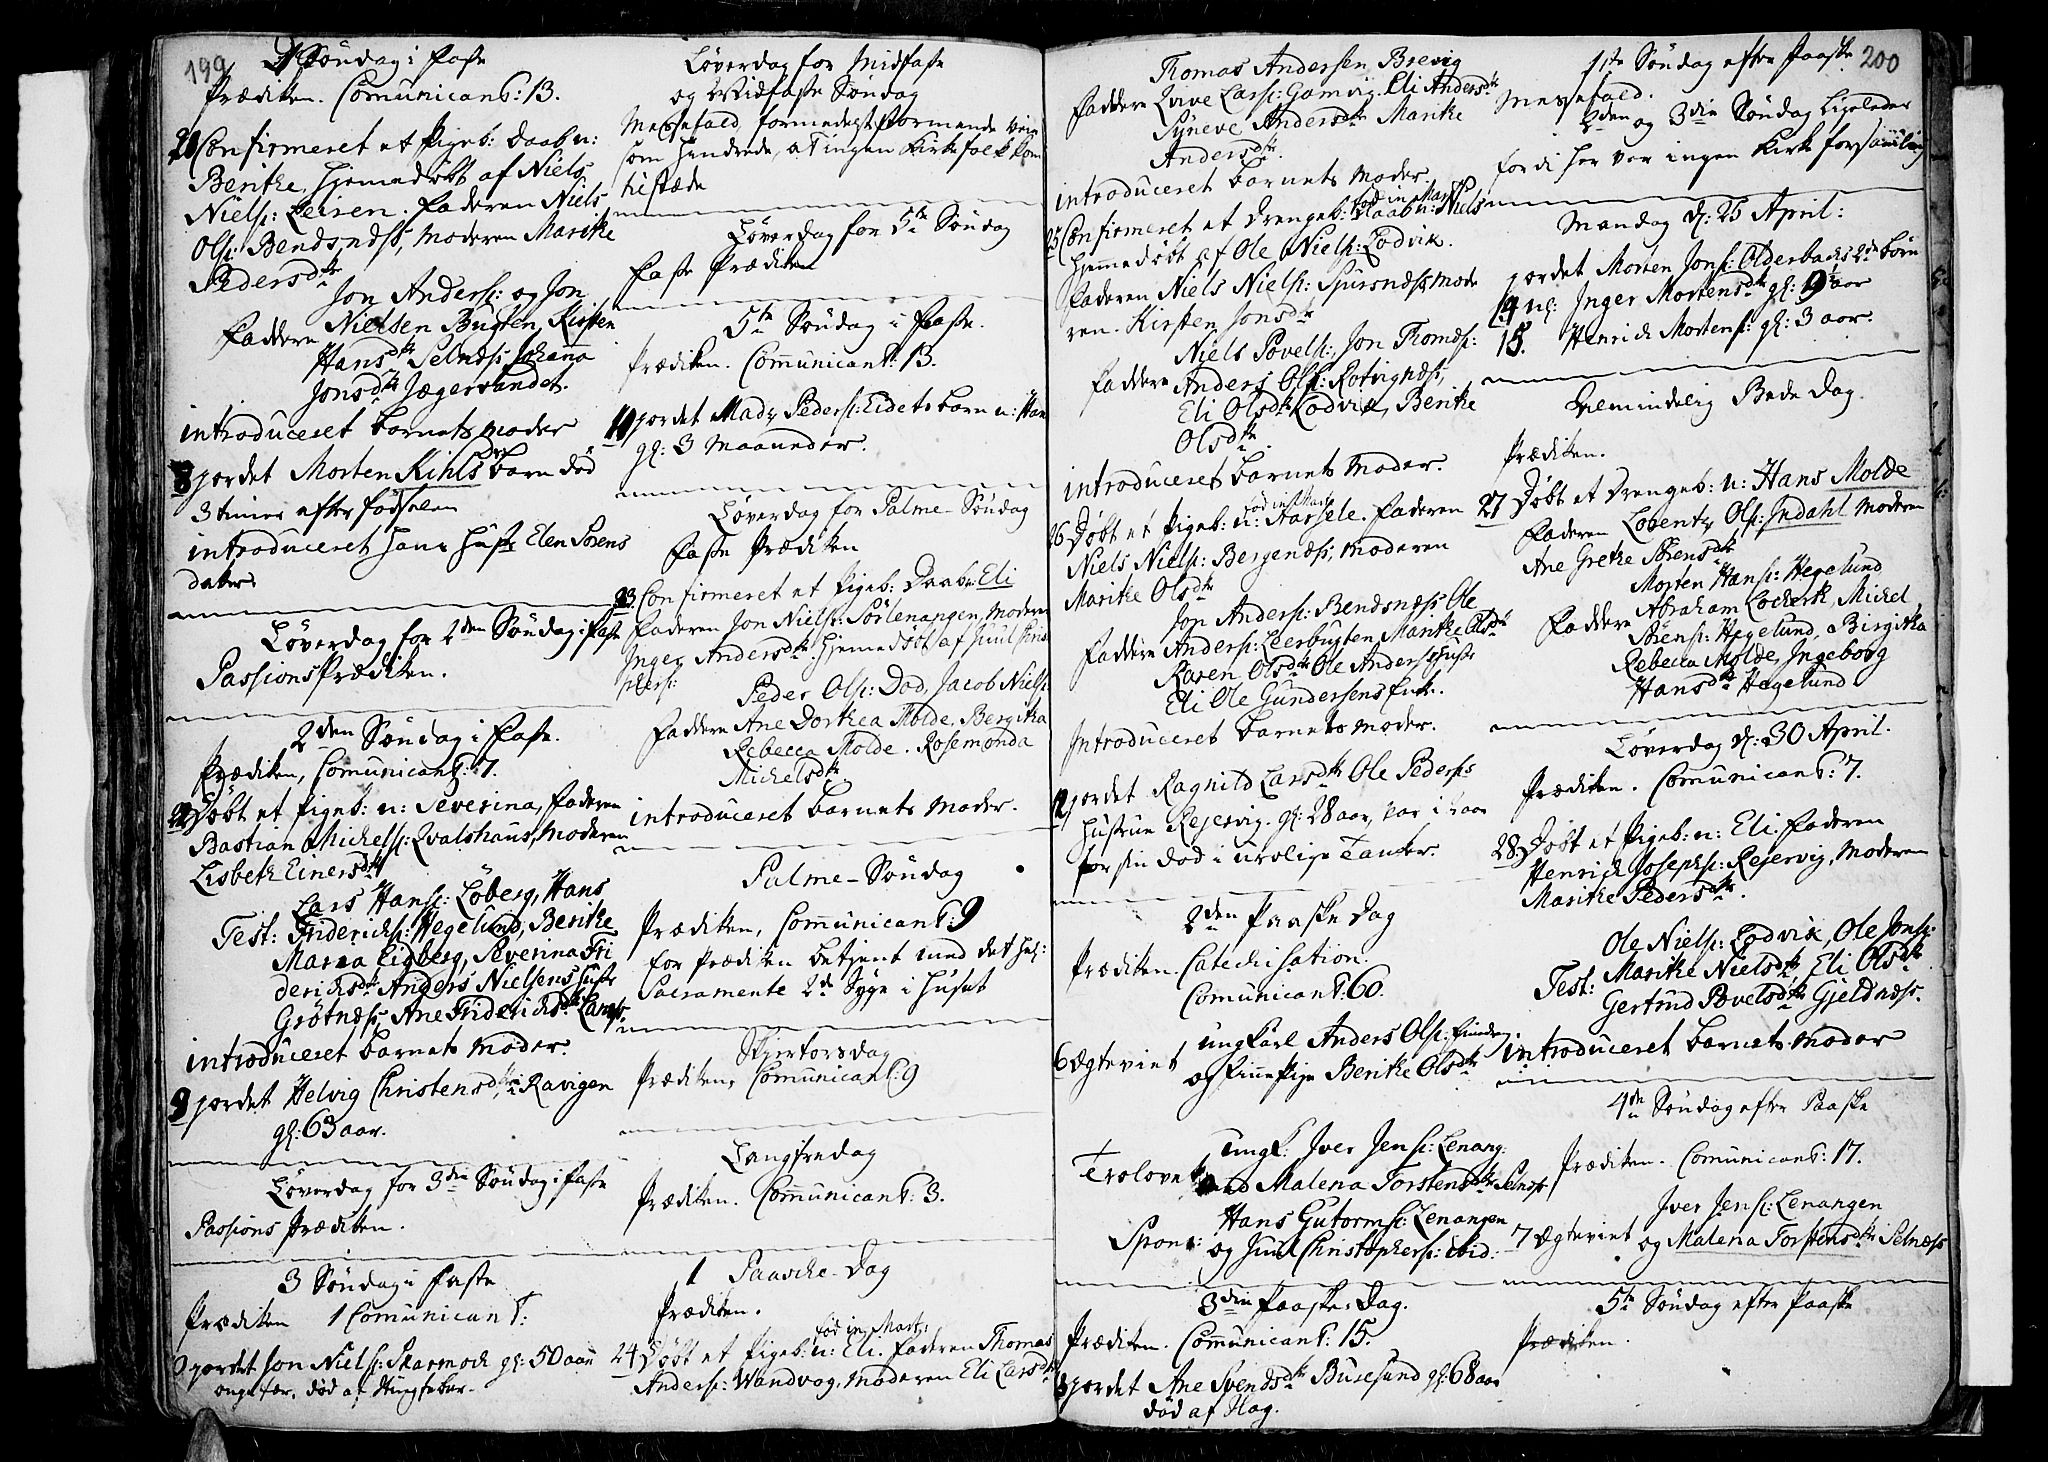 199
1 Söndag i Faste
Prædiken. Comunicant: 13.
21 Confirmeret et Pigeb: Daab n:
Berithe, hjemedöbt af Niels
Nielss: Leisen. Faderen Niels
Ols: Bendsnæss, Moderen Marithe
Pedersdtr
Jon Anderss: og Jon
Faddere Nielsen Bugten, Kirsten
Hansdtr Selnæss, Johanna
Jonsdtr Jægervandet.
introduceret barnets Moder
8 jordet Morten Kihls barn död
3 timer efter födselen
introduceret hans hustr Elen Sörens
datter
Löverdag for 2den Söndag i Faste
Passions Prædiken.
2den Söndag i Faste.
Prædiken, Comunicant: 7.
22 Döbt et Pigeb: n: Severina, Faderen
Bastian Michelss: Qvalshaus, Moderen
Lisbeth Einersdtr
Lars Hanss: Löberg, Hans
Test: Friderichs: Hegelund, Berithe
Maria Eigberg, Severina Fri
derichsdtr Anders Nielsens hustr
Grötnæss, Ane Friderichsdtr Langs.
introduceret barnets Moder.
9 jordet Helvig Christensdtr i Ravigen
gl: 63 aar.
Löverdag for 3die Söndag i Faste
Passions Prædiken.
3 Söndag i Faste
Prædiken 1 Comunicant:
0 jordet Jon Nielss: Skarmoch gl: 50 aar
ongefær, död af Stingfeber.
Löverdag for Midfaste
og Midfaste Söndag
Messefald, formedelst stormende veir
som hindrede, at ingen Kirkefolk kom
tilstæde
Löverdag for 5te Söndag
Faste Prædiken
5te Söndag i Faste.
Prædiken. Communicant: 13.
10 jordet Mads Pederss: Eidets barn n: Hans
gl: 3 Maaneder.
Löverdag for Palme-Söndag
Faste Prædiken
23. Confirmeret et Pigeb: Daab n: Eli
Faderen Jon Nielss: Sörlenangen, Moderen
Inger Andersdtr. hjemedöbt af Juul Chris
phers:
Peder Ols: Dod, Jacob Nielss:
Faddere Ane Dorthea Molde, Bergitha
Rebecca Molde. Rosemonda
Michelsdtr
introduceret barnets Moder.
Palme-Söndag
Prædiken, Communicant: 9
for Prædiken betjent med det höj:
Sacramente 2de Syge i huset
Skjertorsdag
Prædiken, Comunicant: 9
Langfredag
Prædiken. Communicant: 3.
1 Paasche-Dag
Prædiken.
föd in Mart:
24 Döbt et Pigeb: n: Eli. Faderen Thomas
Anderss: Wandvog, Moderen Eli Larsdtr
Thomas Andersen Brevig
Faddere Qvive Larss: Gamvig. Eli Andersdtr
Syneve Andersdtr Marithe
Andersdtr.
introduceret barnets Moder.
föd in Mart
25 Confirmeret et Drengeb: Daab n: Niels
hjemedöbt af Ole Nielss: Lodvik.
Faderen Niels Nielss: Spursnæss, Mode
ren. Kirsten Jonsdtr
Niels Povelss:, Jon Thomæss:
Faddere Anders Ols: Rotvignæss,
Eli Olsdtr Lodvik, Berithe
Olsdtr
introduceret barnets Moder.
föd in Mart
26 Döbt et Pigeb: n: Aarsele. Faderen
Niels Nielss: Bergenæss, Moderen
Marithe Olsdtr
Jon Anderss: Bendsnæss Ole
Faddere Anderss: Leerbugten, Marithe Olsdtr
Karen Olsdtr Ole Anderss hustr
Eli Ole Gundersens Enke.
Introduceret barnets Moder.
12 jordet Ragnild Larsdtr Ole Pederss
hustrue Rejervig. gl: 28 aar, var i 2 aar
for sin död i urolige Tanker.
2den Paaske Dag
Prædiken. Catechisation.
Comunicant: 60.
6 Ægteviet ungkarl Anders Ols:
og Finnepige Berithe Olsdtr
Trolovet ungk: Iver Jenss: Lenang.
med Malena Torstensdtr Selnæss
Spons: Hans Gutormss: Lenangen
og Juul Christophers: ibid:
3die Paaske Dag.
Prædiken. Communicant: 15.
13 jordet Ane Svendsdtr Buresund gl: 68 aar
död af Hag.
1ste Söndag efter Paaske 200
Messefald.
2den og 3die Söndag Ligeledes
fordi her var ingen Kirke forsamling
Mandag d: 25 April:
jordet Morten Jonss: Olderbakens 2de börn
14 nl: Inger Mortensdtr gl: 9 aar
15. Henrich Mortenss: gl: 3 aar.
Almindelig Bede Dag.
Prædiken.
27 Döbt et Drengeb: n: Hans Molde
Faderen Lorentz Ols: Indahl Moderen
Ane Grethe Sörensdtr
Morten Hanss: Hegelund
Faddere Abraham Lockert, Michel
Börnss: Hegelund, Birgitha
Rebecca Molde, Ingeborg
Hansdtr Hegelund
Löverdag d: 30 April.
Prædiken. Comunicant: 7.
28 Döbt et Pigeb: n: Eli. Faderen
Henrich Josephs: Rejervig, Moderen
Marithe Pedersdtr.
Ole Nielss: Lodvik, Ole Jonss:
Test: Marithe Nielsdtr Eli Olsdtr
Gertrud Povelsdtr Gjeldnæss.
introduceret barnets Moder
4de Söndag efter Paaske
Prædiken. Comunicant: 17.
Iver Jenss: Lenangen
7 Ægteviet og Malena Torstensdtr Selnæss
5te Söndag efter Paaske
Prædiken.